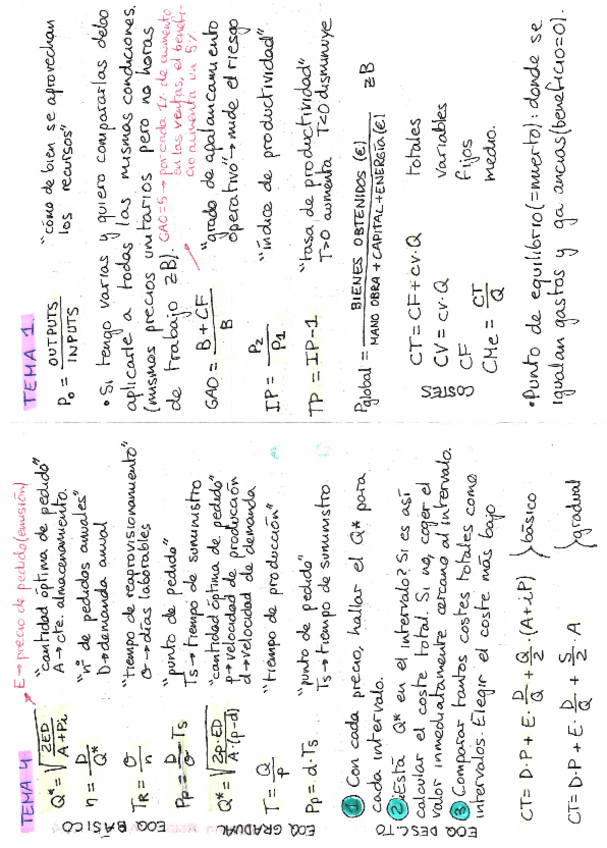 TEMA 1
P₀ = OUTPUTS / INPUTS "cómo de bien se aprovechan
los recursos"
• Si tengo varias y quiero compararlas debo
aplicarle a todas las mismas condiciones.
(mismos precios unitarios pero no horas
de trabajo ≥B).
GAO=5→por cada 1% de aumento
en las ventas, el benefi-
cio aumenta un 5%
GAO = B + CF / B "grado de apalancamiento
operativo"→mide el riesgo
IP = P₂ / P₁ "índice de productividad"
TP = IP-1 "tasa de productividad"
T>0 aumenta T<0 disminuye
Pglobal = BIENES OBTENIDOS (€) / MANO OBRA + CAPITAL + ENERGÍA (€) ≥B
COSTES
CT = CF + cv·Q totales
CV = cv·Q variables
CF fijos
CMe = CT / Q medio.
• Punto de equilibrio (=muerto): donde se
igualan gastos y ganancias (beneficio=0).
TEMA 4
E→precio de pedido (emisión)
EOQ BÁSICO
Q* = √ 2ED / A+Pi "cantidad óptima de pedido"
A→cte. almacenamiento.
n = D / Q* "nº de pedidos anuales"
D→demanda anual
TR = σ / n "tiempo de reaprovisionamiento"
σ→días laborables
Pp = D / σ · Ts "punto de pedido"
Ts→tiempo de suministro
EOQ GRADUAL
Q* = √ 2p·ED / A·(p-d) "cantidad óptima de pedido"
p→velocidad de producción
d→velocidad de demanda
T = Q / p "tiempo de producción"
Pp = d·Ts "punto de pedido"
Ts→tiempo de suministro
EOQ DESC.TO
1 Con cada precio, hallar el Q* para
cada intervalo.
2 ¿Está Q* en el intervalo? Si es así
calcular el coste total. Si no, coger el
valor inmediatamente cercano al intervalo.
3 Comparar tantos costes totales como
intervalos. Elegir el coste más bajo
CT = D·P + E· D/Q + Q/2 ·(A+iP) } básico
CT = D·P + E· D/Q + S/2 ·A } gradual